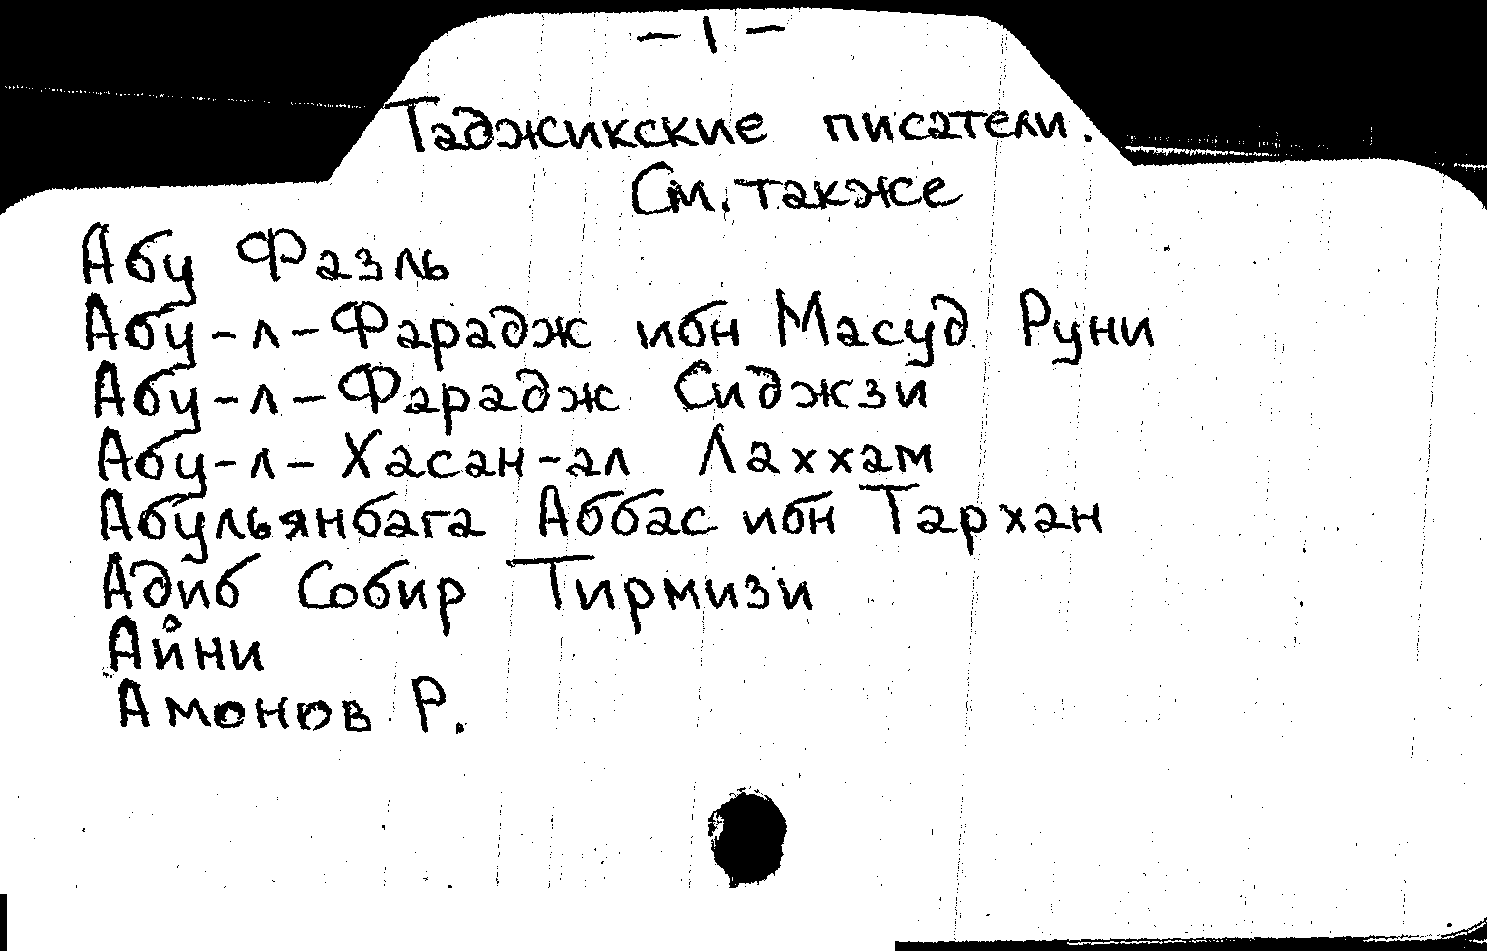 - 1 -
Таджикские писатели.
См. также
Абу Фазль
Абу-л-Фарадж ибн Масуд Руни
Абу-л-Фарадж Сиджзи
Абу-л-Хасан-ал Лаххам
Абульянбага Аббас ибн Тархан
Адиб Собир Тирмизи
Айни
Амонов Р.